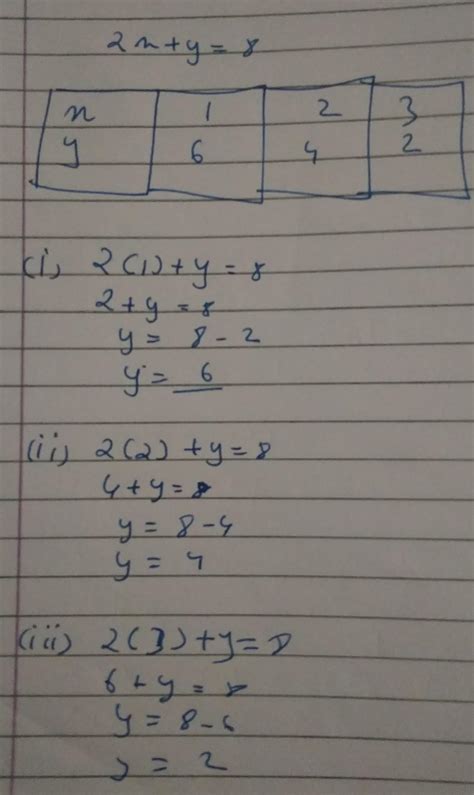 2x+y=8
x 1 2 3
y 6 4 2
(i) 2(1)+y=8
2+y=8
y= 8-2
y= 6
(ii) 2(2)+y=8
4+y=8
y= 8-4
y= 4
(iii) 2(3)+y=8
6+y=8
y= 8-6
y= 2